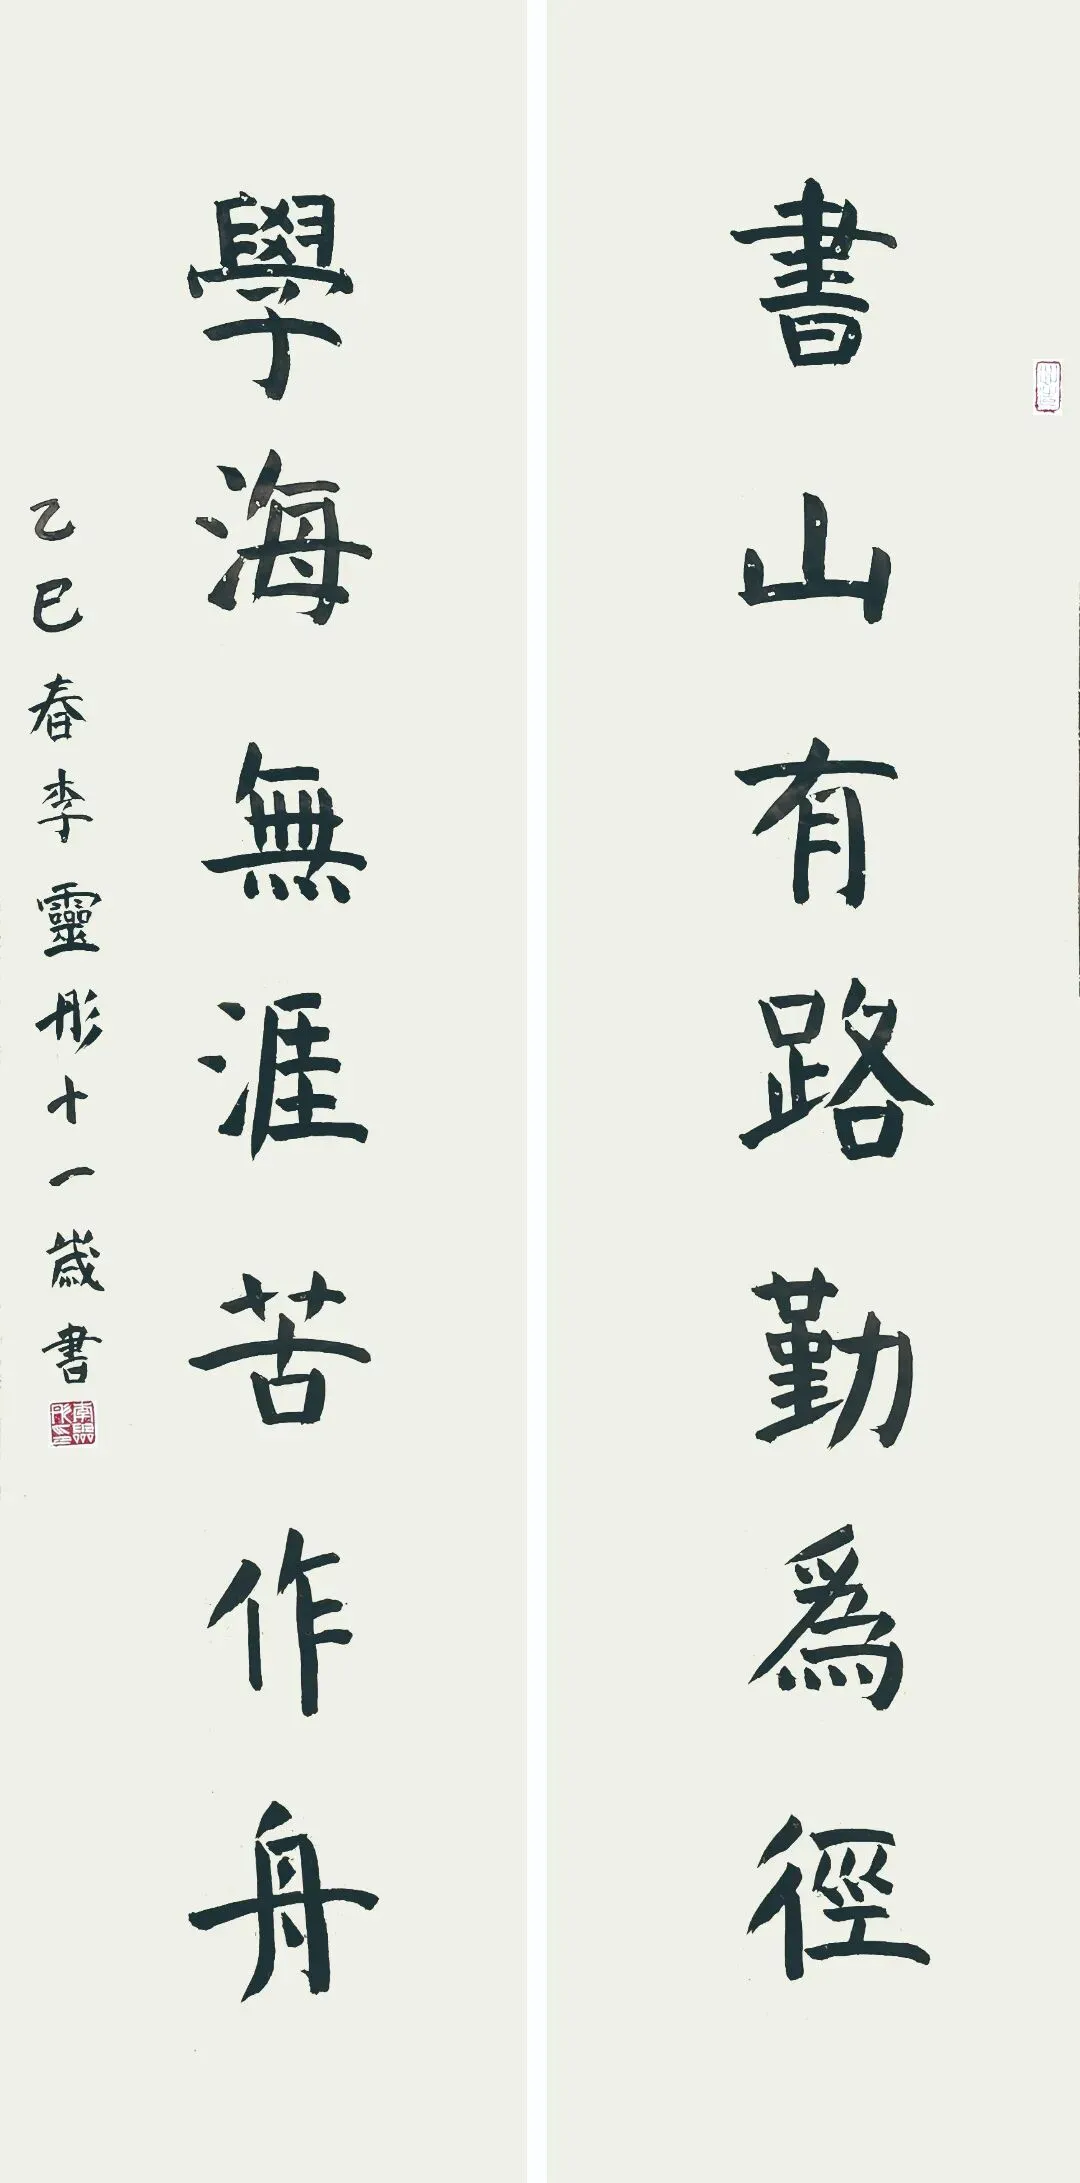 書山有路勤爲徑
學海無涯苦作舟
乙巳春李靈彤十一歲書